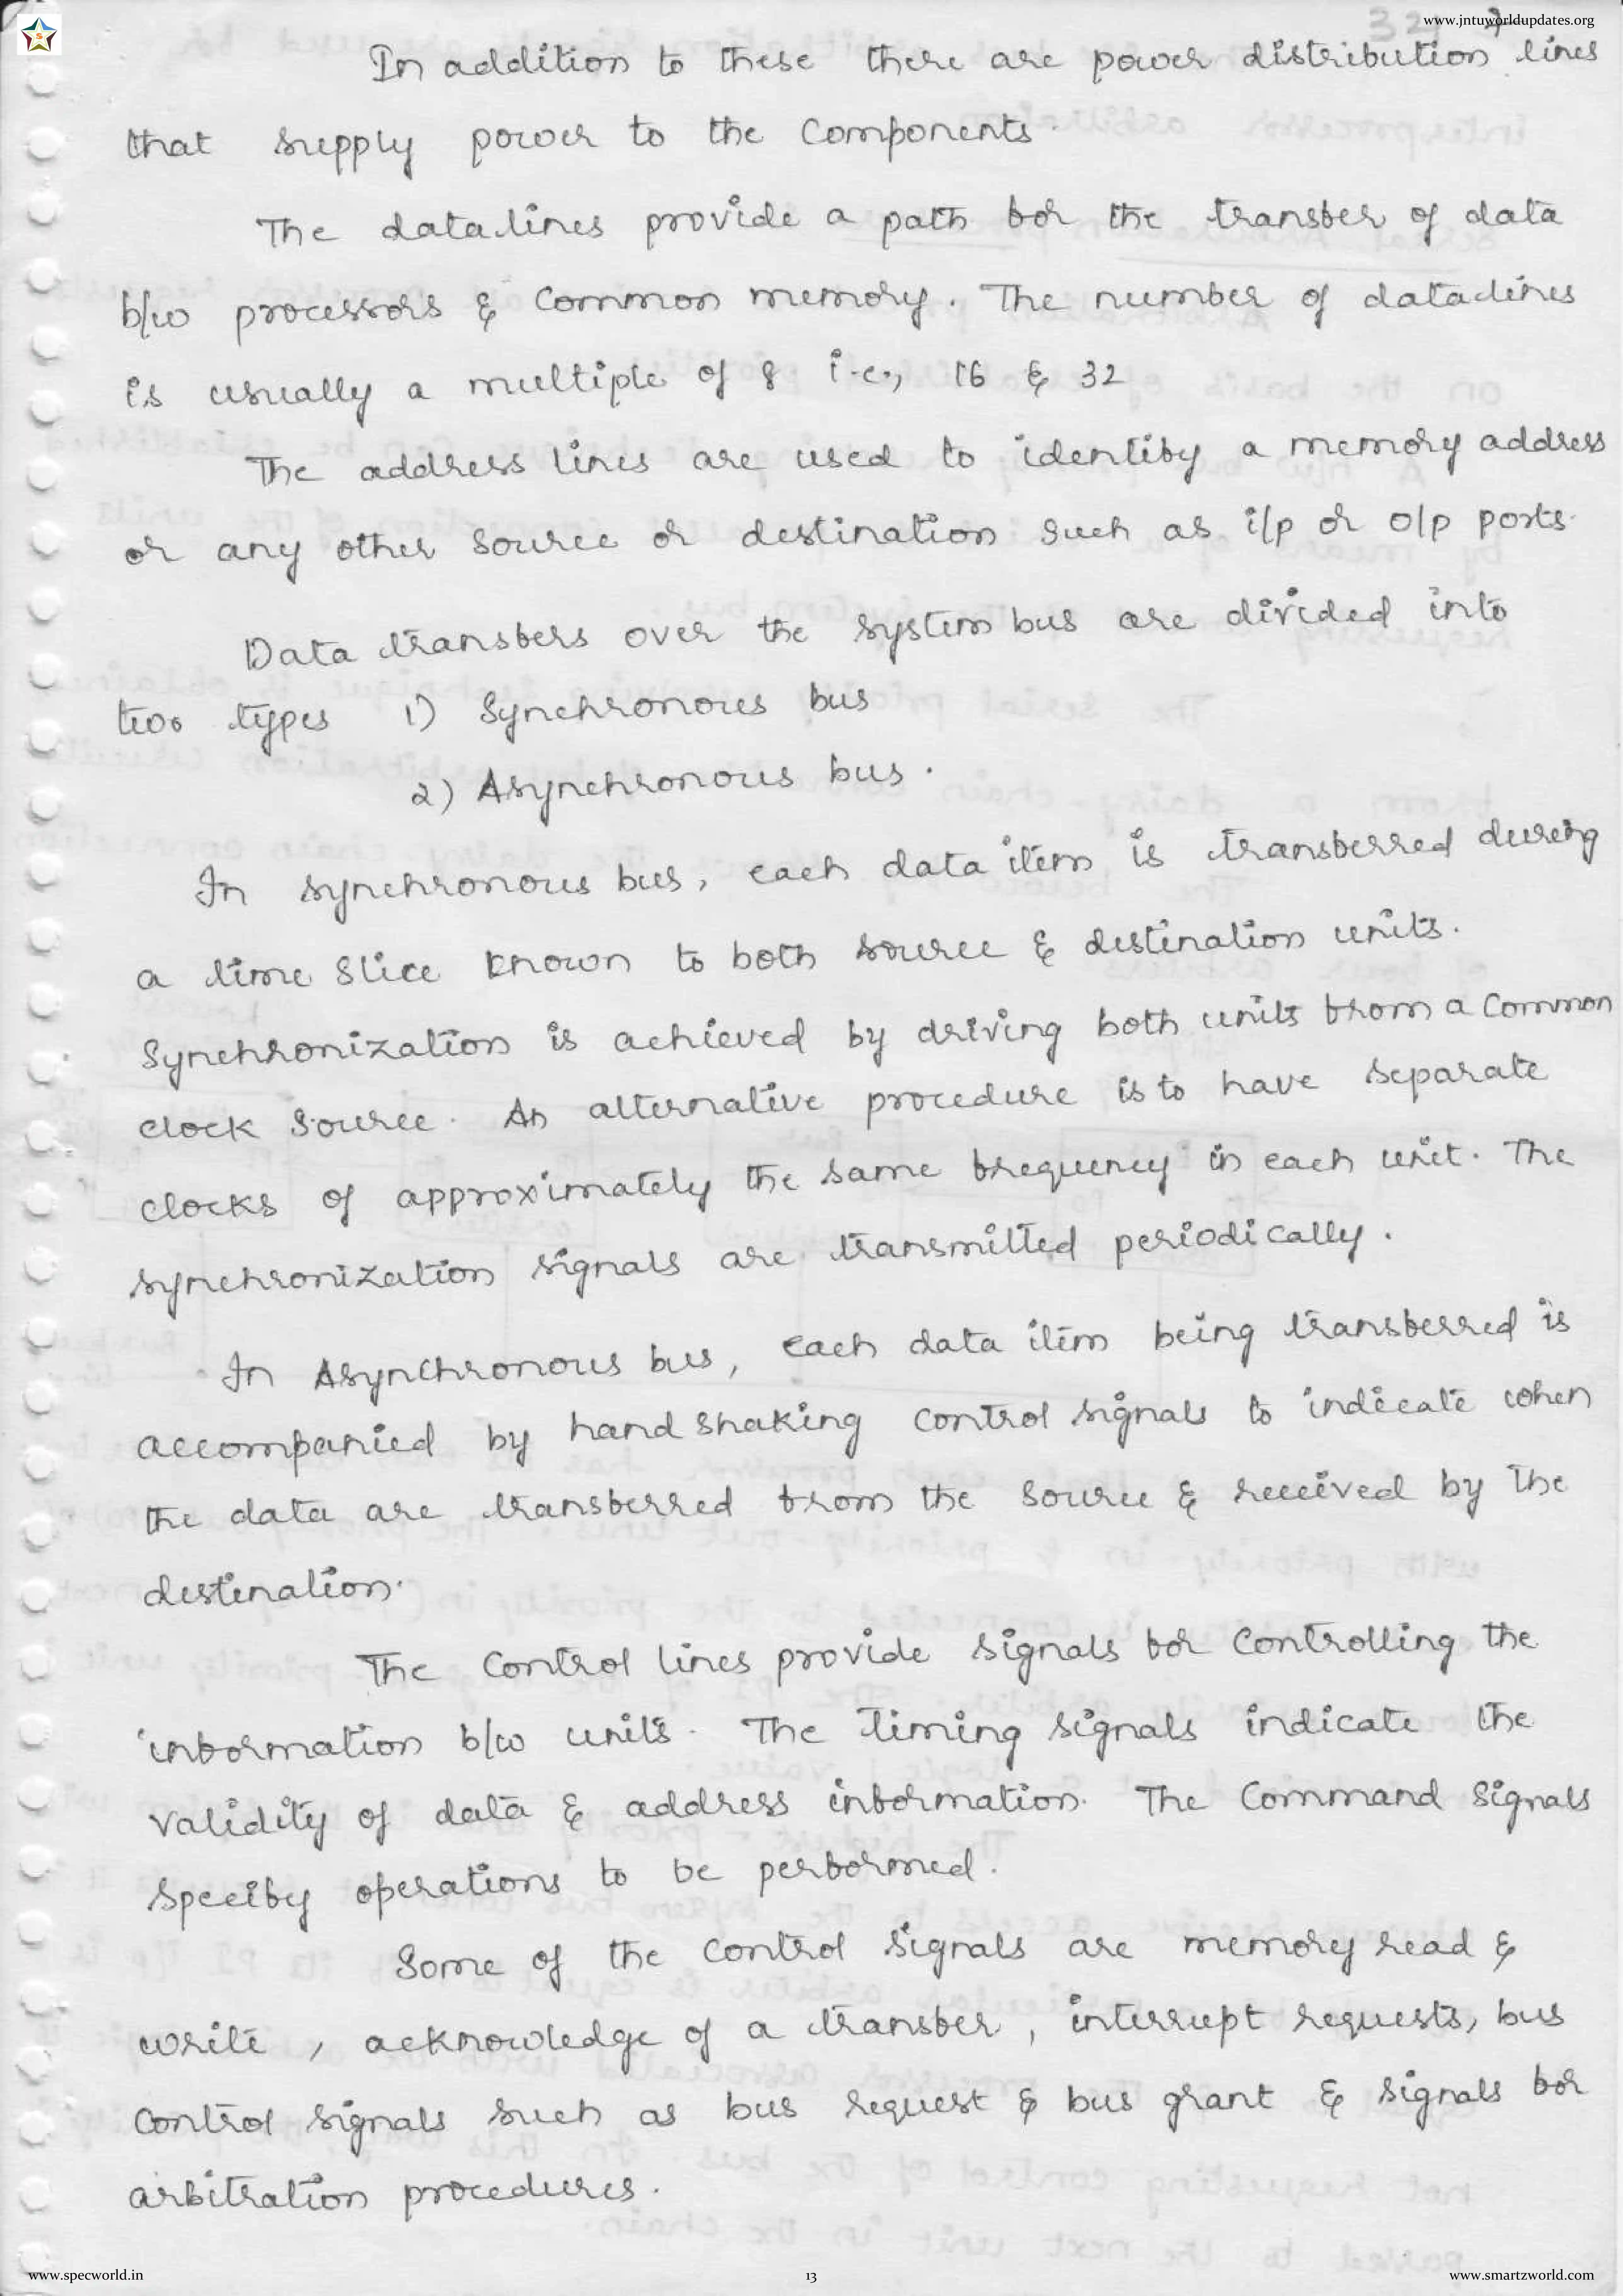 www.jntuworldupdates.org
In addition to these there are power distribution lines
that supply power to the components.
The data lines provide a path for the transfer of data
b/w processors & common memory. The number of data lines
is usually a multiple of 8 i.e., 16 & 32
The address lines are used to identify a memory address
or any other source or destination such as i/p or o/p ports.
Data transfers over the system bus are divided into
two types 1) Synchronous bus
2) Asynchronous bus.
In synchronous bus, each data item is transferred during
a time slice known to both source & destination units.
Synchronization is achieved by driving both units from a common
clock source. An alternative procedure is to have separate
clocks of approximately the same frequency in each unit. The
synchronization signals are transmitted periodically.
In Asynchronous bus, each data item being transferred is
accompanied by hand shaking control signals to indicate when
the data are transferred from the source & received by the
destination.
The control lines provide signals for controlling the
information b/w units. The timing signals indicate the
validity of data & address information. The Command signals
specify operations to be performed.
Some of the control signals are memory read &
write, acknowledge of a transfer, interrupt requests, bus
control signals such as bus request & bus grant & signals for
arbitration procedures.
www.specworld.in 13 www.smartzworld.com